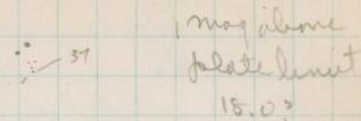 37
1 mag above
plate limit
18.0?